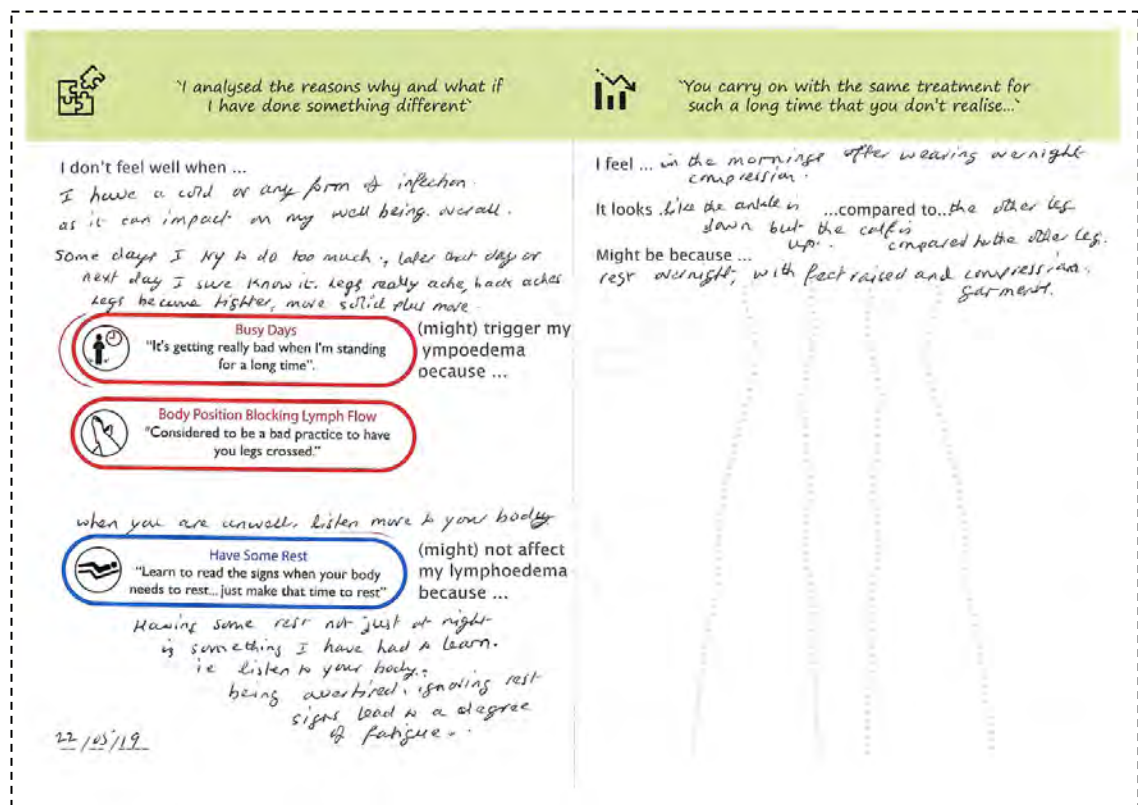 `I analysed the reasons why and what if
I have done something different`
I don't feel well when ...
I have a cold or any form of infection.
as it can impact on my well being. overall.
Some days I try to do too much., later that day or
next day I sure know it. Legs really ache, back aches
Legs become tighter, more solid plus more.
Busy Days
"It's getting really bad when I'm standing
for a long time".
(might) trigger my
ympoedema
because ...
Body Position Blocking Lymph Flow
"Considered to be a bad practice to have
you legs crossed."
when you are unwell, listen more to your body
Have Some Rest
"Learn to read the signs when your body
needs to rest... just make that time to rest"
(might) not affect
my lymphoedema
because ...
Having some rest not just at night
is something I have had to learn.
ie listen to your body..
being overtired, ignoring rest
signs lead to a degree
of fatigue..
22/05/19
`You carry on with the same treatment for
such a long time that you don't realise...`
I feel ... in the mornings after wearing overnight
compression.
It looks .like the ankle is ...compared to...the other leg
down but the calf is
up.. compared to the other leg.
Might be because ...
rest overnight, with feet raised and compression.
garment.